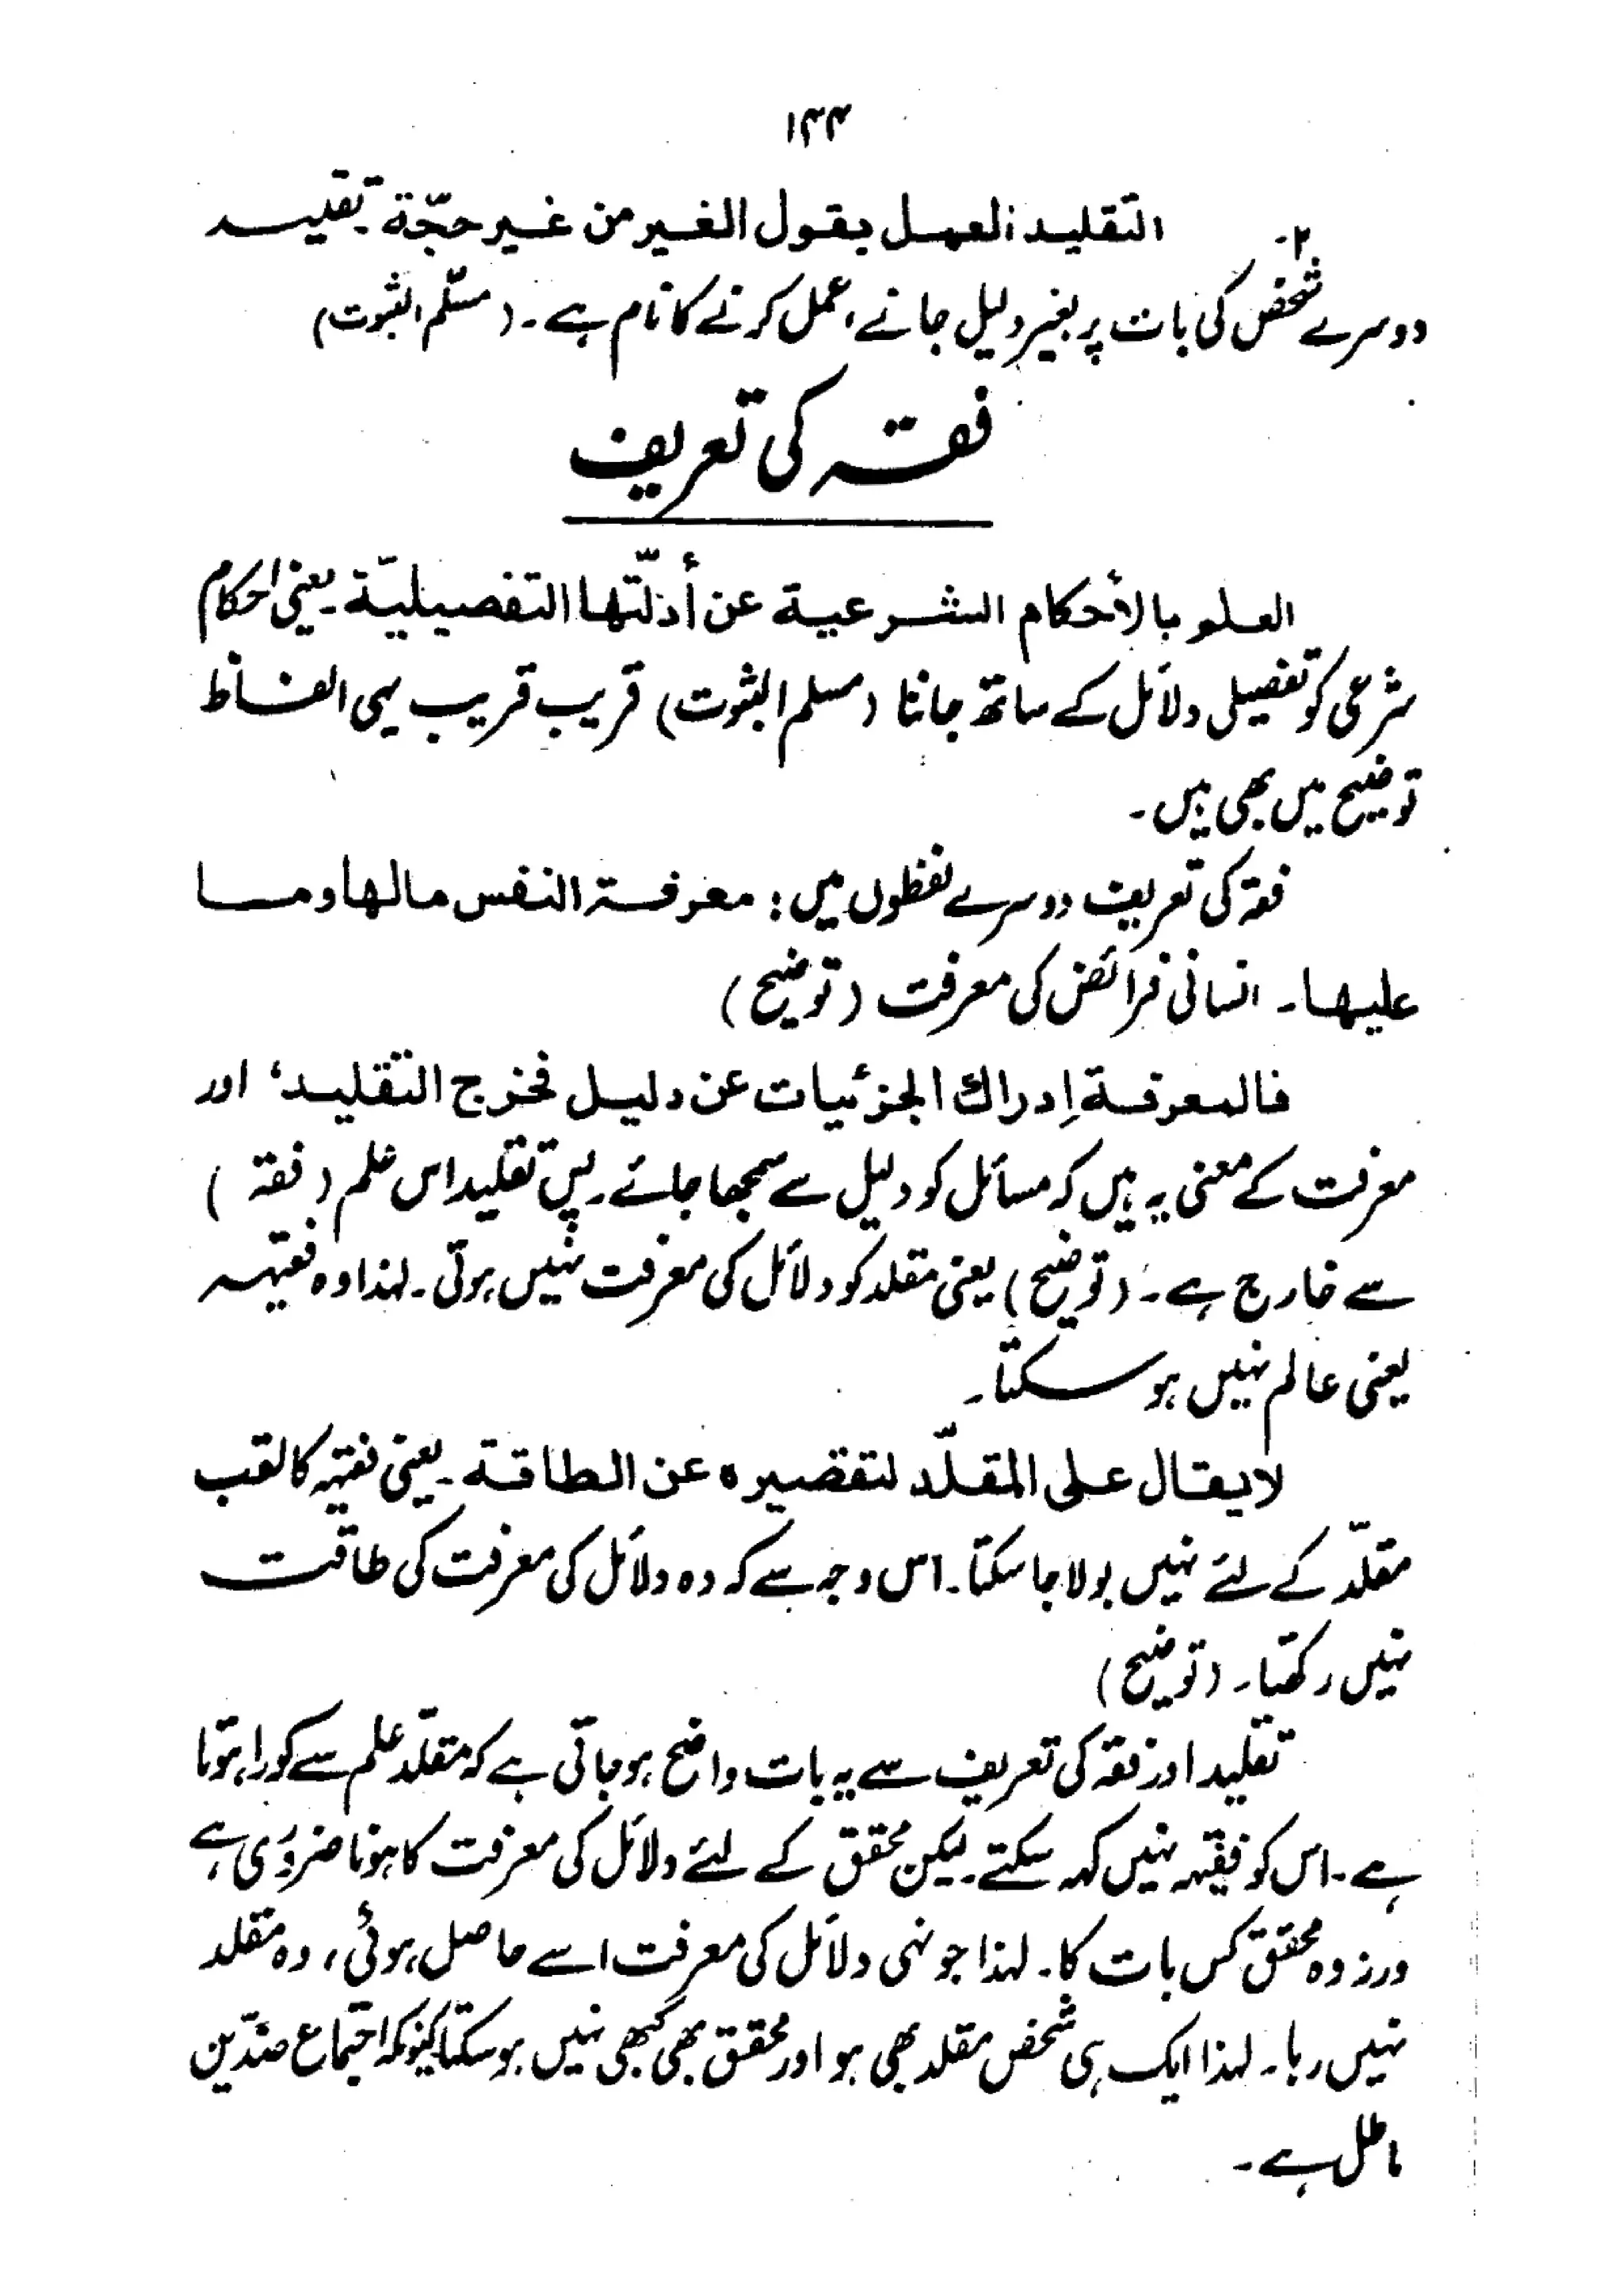 ۱۴۴
۲۔ التقليد العمل بقول الغير من غير حجّة۔ تقلیـد
دوسرے شخص کی بات پر بغیر دلیل جانے، عمل کرنے کا نام ہے۔ (مسلّم الثبوت)
فقہ کی تعریف
العلم بالأحكام الشرعية عن أدلّتها التفصيليّة۔ یعنی احکام
شرعی کو تفصیلی دلائل کے ساتھ جاننا (مسلم الثبوت) قریب قریب یہی الفاظ
توضیح میں بھی ہیں۔
فقہ کی تعریف دوسرے لفظوں میں: معرفة النفس مالها وما
علیها۔ انسانی فرائض کی معرفت (توضیح)
فالمعرفة إدراك الجزئيات عن دليل فخرج التقليد، اور
معرفت کے معنی یہ ہیں کہ مسائل کو دلیل سے سمجھا جائے۔ پس تقلید اس علم (فقہ)
سے خارج ہے۔ (توضیح) یعنی مقلد کو دلائل کی معرفت نہیں ہوتی۔ لہٰذا وہ فقیہہ
یعنی عالم نہیں ہو سکتا۔
لا يقال على المقلّد لتقصيره عن الطاقة۔ یعنی فقیہ کا لقب
مقلّد کے لئے نہیں بولا جا سکتا۔ اس وجہ سے کہ وہ دلائل کی معرفت کی طاقت
نہیں رکھتا۔ (توضیح)
تقلید اور فقہ کی تعریف سے یہ بات واضح ہو جاتی ہے کہ مقلّد علم سے کورا ہوتا
ہے۔ اس کو فقیہہ نہیں کہہ سکتے۔ لیکن محقق کے لئے دلائل کی معرفت کا ہونا ضروری ہے
ورنہ وہ محقق کس بات کا۔ لہذا جونہی دلائل کی معرفت اسے حاصل ہوئی، وہ مقلد
نہیں رہا۔ لہذا ایک ہی شخص مقلد بھی ہو اور محقق بھی کبھی نہیں ہو سکتا کیونکہ اجتماع ضدّین
باطل ہے۔